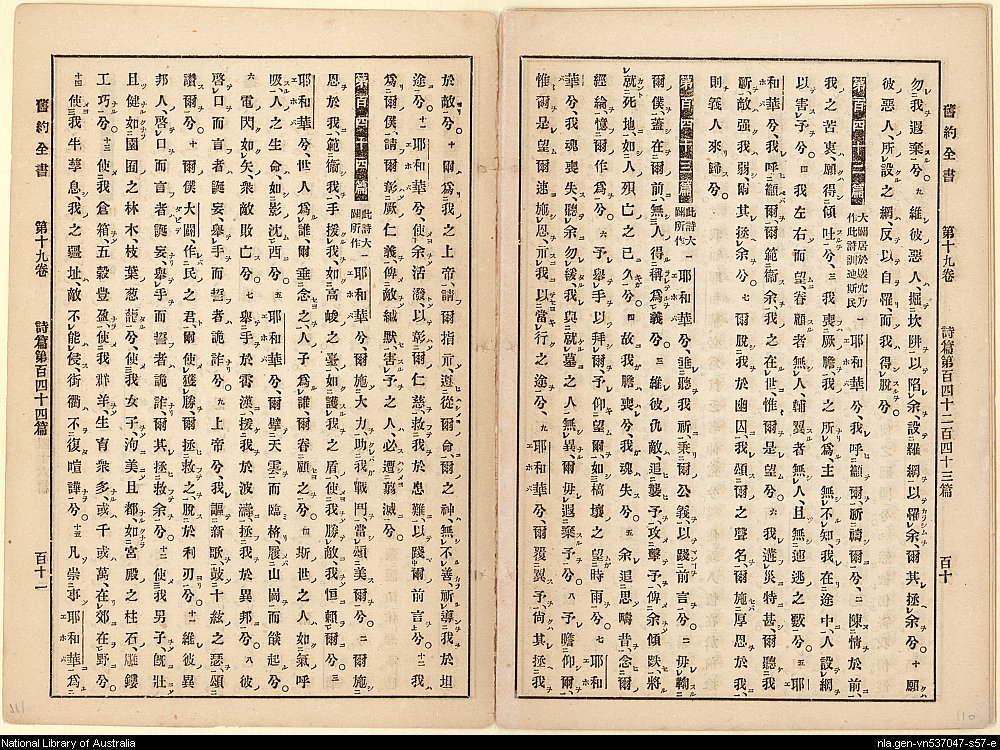 舊約全書 第十九卷 詩篇第百四十二百四十三篇 百十
勿我遐棄兮。九維彼惡人、掘坎阱以陷余、設羅網以罹余、爾其拯余兮。十願
彼惡人、所設之網、反以自罹、而我得脫兮。
第百四十二篇 大闢居於巖穴乃作此詩訓迪斯民 一耶和華兮、我呼籲爾、祈禱爾兮、二陳情於前、
我之苦衷、願得傾吐兮、三我喪厥膽、我之所爲、主無不知、我在途中、人設網
以害予兮。四我左右而望、眷顧者無人、輔翼者無人、且無逋逃之藪兮。五耶
和華兮、我呼籲爾、爾範衞余、我之在世、惟爾是望兮。六我遘災特甚、爾聽我
籲、敵强我弱、爾其拯余兮。七爾脫我於幽囚、我頌爾之聲名、爾施厚恩於我、
則義人來歸兮。
第百四十三篇 此詩大闢所作 一耶和華兮、垂聽我祈、秉爾公義、以踐前言兮。二毋鞫
爾僕、蓋在爾前、無人得稱爲義兮。三維彼仇敵、追襲予、攻擊予、俾余傾跌、將
就死地、如人歿亡之已久兮。四故我膽喪兮、我魂失兮。五余追思疇昔、念爾
經綸、憶爾作爲兮。六予舉手以拜爾、予仰望爾、如槁壤之望時雨兮。七耶和
華兮、我魂喪失、聽余勿緩、我與就墓之人無異、爾毋遐棄予兮。八予瞻仰爾、
惟爾是望、爾速施恩、示我以當行之途兮、九耶和華兮、爾覆翼予、尙其拯我
於敵兮。十爾爲我之上帝、請爾指示、遵從爾命、爾之神、無不善、祈導我於坦
途兮、十一耶和華兮、使余活潑、以彰爾仁慈、救我於患難、以踐爾前言兮、十二我
爲爾僕、請爾彰厥仁義、俾敵緘默、害予之人、必遭翦滅兮。
第百四十四篇 此詩大闢所作 一耶和華兮、爾施大力、助我戰鬥、當頌美爾兮。二爾施
恩於我、範衞我、手援我、如高峻之臺、如護我之盾、使我勝敵、我恒賴爾兮。三
耶和華兮、世人爲誰、爾垂念之、人子爲誰、爾眷顧之兮。四斯世之人、如氣呼
吸、人之生命、如影沈西兮。五耶和華兮、爾擘天雲而臨格、履山崗而燄起兮。
六電閃如矢、衆敵敗亡兮。七舉手於霄漢、援我於波濤、拯我於異邦兮。八彼
啓口而言者誕妄、舉手而誓者詭詐兮。九上帝兮、我謳新歌、鼓十絃之瑟、頌
讚爾兮。十爾僕大闢、作民之君、爾使獲勝、爾拯救之、脫於利刃兮。十一維彼異
邦人、啓口而言者誕妄、舉手而誓者詭詐、爾其拯救余兮。十二使我男子、旣壯
且健、如園囿之林木、枝葉葱蘢兮、使我女子、洵美且都、如宮殿之柱石、雕鏤
工巧兮、十三使我倉箱、五穀豊盈、使我牂羊、生育衆多、或千或萬、在郊在野兮。
十四使我牛孳息、我之疆址、敵不能侵、街衢不復喧譁兮。十五凡崇事耶和華爲
舊約全書 第十九卷 詩篇第百四十四篇 百十一
National Library of Australia
nla.gen-vn537047-s57-e